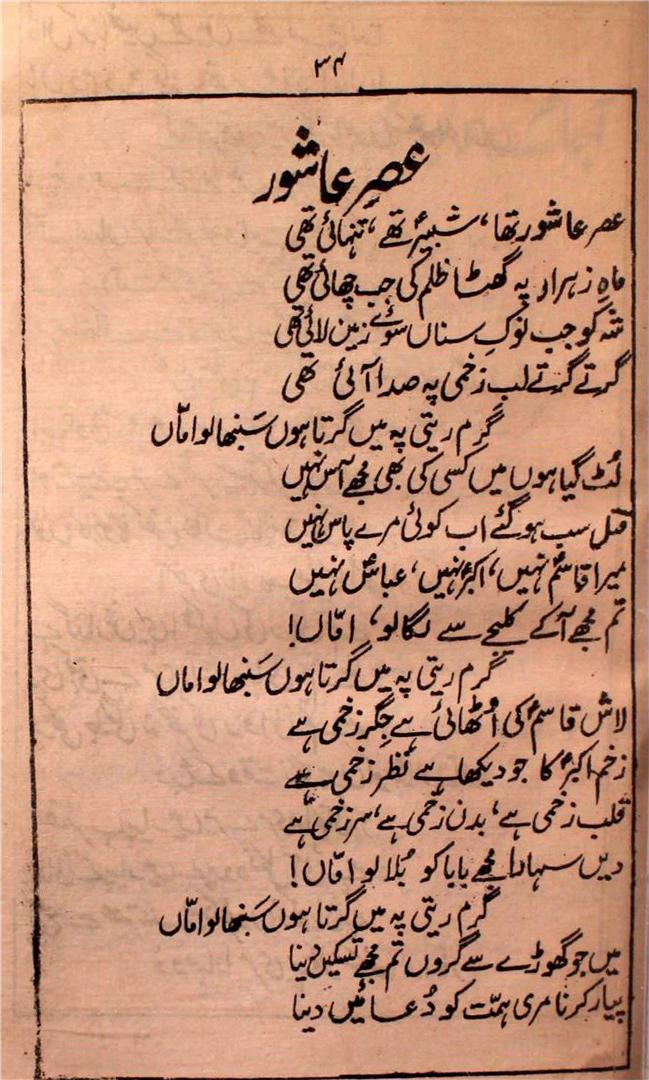 ۳۴
عصرِ عاشور
عصر عاشور تھا، شبیرؑ تھے، تنہائی تھی
ماہِ زہراؑ پہ گھٹا ظلم کی جب چھائی تھی
شہ کو جب نوکِ سناں سوئے زمین لائی تھی
گرتے گرتے لب زخمی پہ صدا آئی تھی
گرم ریتی پہ میں گرتا ہوں سَنبھالو امّاں
لُٹ گیا ہوں میں کسی کی بھی مجھے آس نہیں
قتل سب ہو گئے اب کوئی مرے پاس نہیں
میرا قاسمؑ نہیں، اکبرؑ نہیں، عباسؑ نہیں
تم مجھے آ کے کلیجے سے لگا لو، امّاں!
گرم ریتی پہ میں گرتا ہوں سَنبھالو اماں
لاش قاسمؑ کی اُٹھائی ہے جگر زخمی ہے
زخم اکبرؑ کا جو دیکھا ہے نظر زخمی ہے
قلب زخمی ہے، بدن زخمی ہے، سر زخمی ہے
دیں سہارا مجھے بابا کو بُلا لو امّاں!
گرم ریتی پہ میں گرتا ہوں سَنبھالو امّاں
میں جو گھوڑے سے گروں تم مجھے تسکیں دینا
پیار کرنا مری ہمّت کو دُعائیں دینا